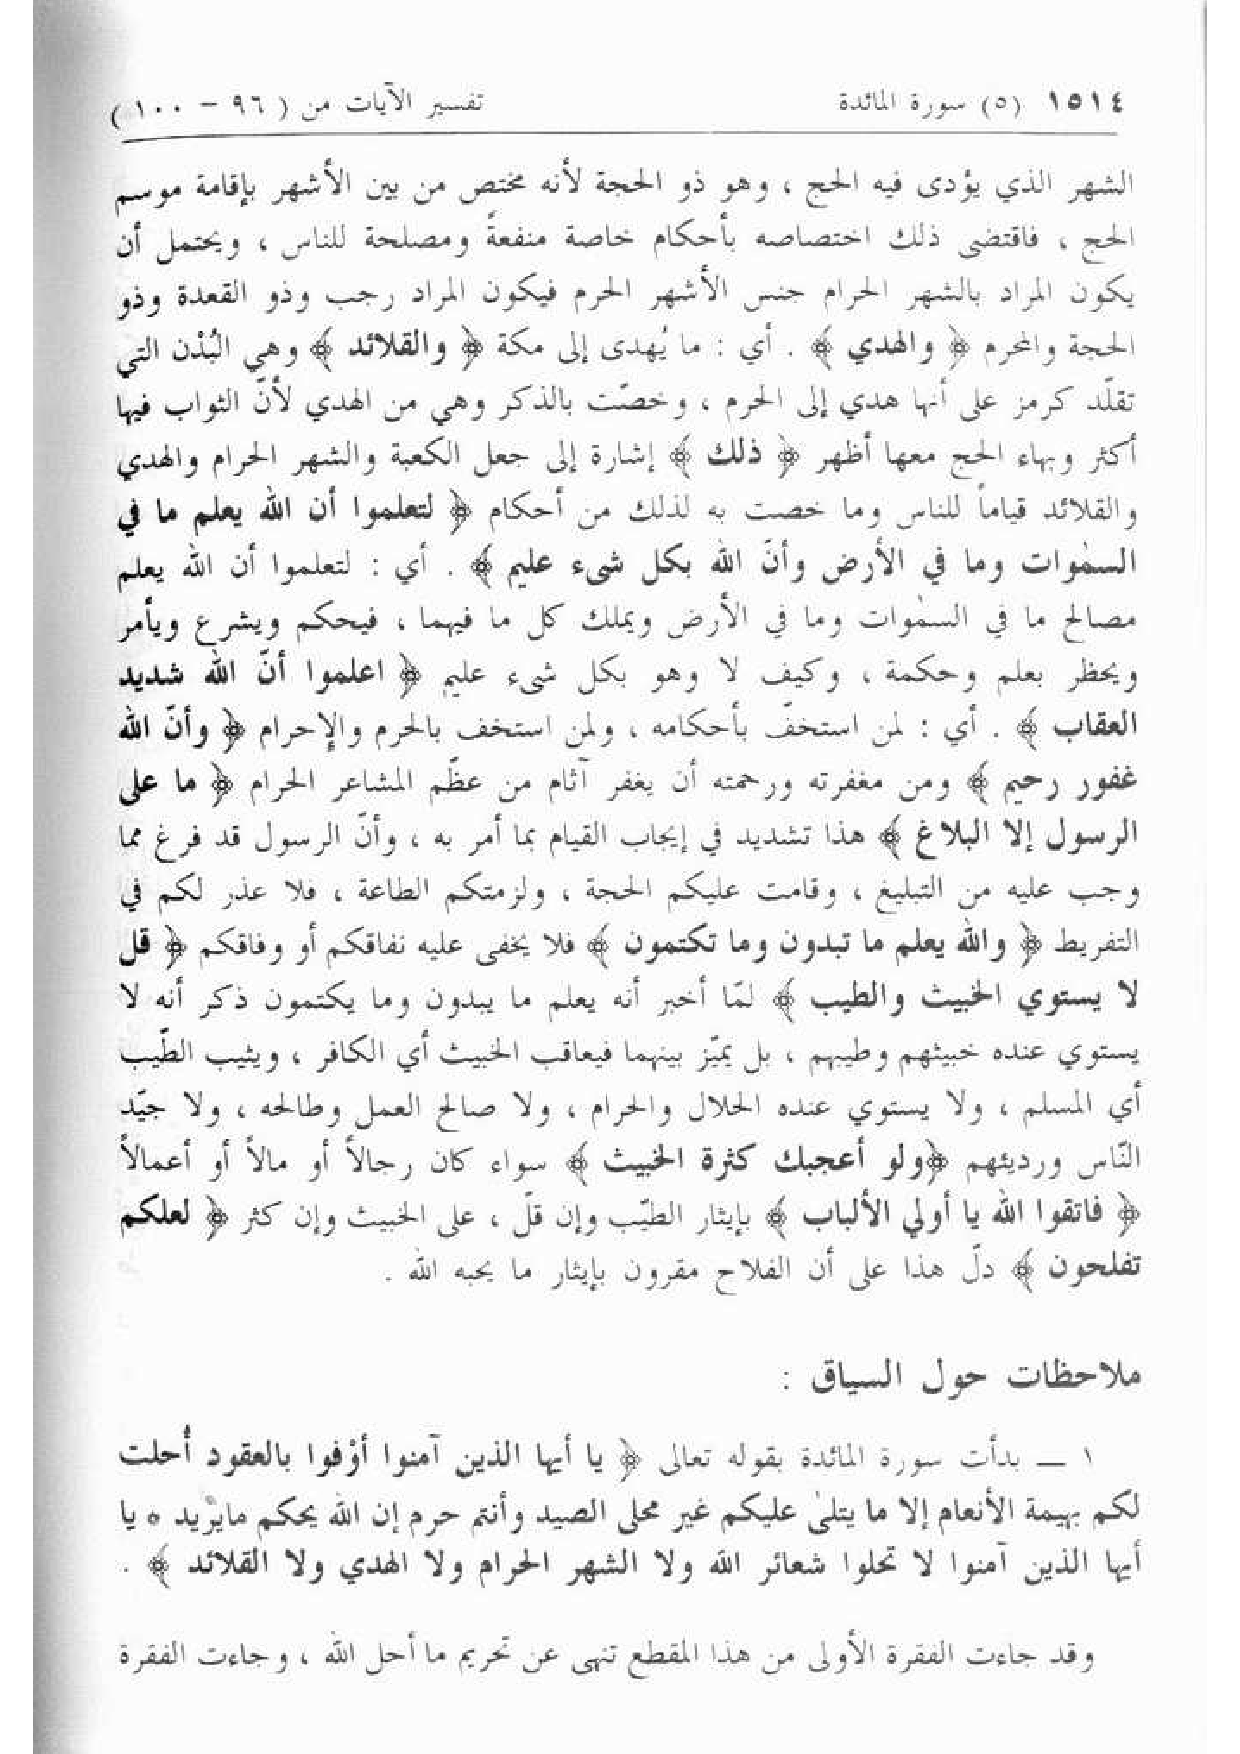 ١٥١٤ (٥) سورة المائدة تفسير الآيات من ( ٩٦ – ١٠٠ )
الشهر الذي يؤدى فيه الحج ، وهو ذو الحجة لأنه مختص من بين الأشهر بإقامة موسم
الحج ، فاقتضى ذلك اختصاصه بأحكام خاصة منفعةً ومصلحة للناس ، ويحتمل أن
يكون المراد بالشهر الحرام جنس الأشهر الحرم فيكون المراد رجب وذو القعدة وذو
الحجة والمحرم ﴿ والهدي ﴾ . أي : ما يُهدى إلى مكة ﴿ والقلائد ﴾ وهي البُدْن التي
تقلّد كرمز على أنها هدي إلى الحرم ، وخصّت بالذكر وهي من الهدي لأنّ الثواب فيها
أكثر وبهاء الحج معها أظهر ﴿ ذلك ﴾ إشارة إلى جعل الكعبة والشهر الحرام والهدي
والقلائد قياماً للناس وما خصت به لذلك من أحكام ﴿ لتعلموا أن الله يعلم ما في
السمٰوات وما في الأرض وأنّ الله بكل شىء عليم ﴾ . أي : لتعلموا أن الله يعلم
مصالح ما في السمٰوات وما في الأرض ويملك كل ما فيهما ، فيحكم ويشرع ويأمر
ويحظر بعلم وحكمة ، وكيف لا وهو بكل شىء عليم ﴿ اعلموا أنّ الله شديد
العقاب ﴾ . أي : لمن استخفّ بأحكامه ، ولمن استخف بالحرم والإحرام ﴿ وأنّ الله
غفور رحيم ﴾ ومن مغفرته ورحمته أن يغفر آثام من عظّم المشاعر الحرام ﴿ ما على
الرسول إلا البلاغ ﴾ هذا تشديد في إيجاب القيام بما أمر به ، وأنّ الرسول قد فرغ مما
وجب عليه من التبليغ ، وقامت عليكم الحجة ، ولزمتكم الطاعة ، فلا عذر لكم في
التفريط ﴿ والله يعلم ما تبدون وما تكتمون ﴾ فلا يخفى عليه نفاقكم أو وفاقكم ﴿ قل
لا يستوي الخبيث والطيب ﴾ لمّا أخبر أنه يعلم ما يبدون وما يكتمون ذكر أنه لا
يستوي عنده خبيثهم وطيبهم ، بل يميّز بينهما فيعاقب الخبيث أي الكافر ، ويثيب الطّيب
أي المسلم ، ولا يستوي عنده الحلال والحرام ، ولا صالح العمل وطالحه ، ولا جيّد
النّاس ورديئهم ﴿ولو أعجبك كثرة الخبيث ﴾ سواء كان رجالاً أو مالاً أو أعمالاً
﴿ فاتقوا الله يا أولي الألباب ﴾ بإيثار الطيّب وإن قلّ ، على الخبيث وإن كثر ﴿ لعلكم
تفلحون ﴾ دلّ هذا على أن الفلاح مقرون بإيثار ما يحبه الله .
ملاحظات حول السياق :
١ ــ بدأت سورة المائدة بقوله تعالى ﴿ يا أيها الذين آمنوا أوْفوا بالعقود أُحلت
لكم بهيمة الأنعام إلا ما يتلىٰ عليكم غير محلي الصيد وأنتم حرم إن الله يحكم مايريد ٥ يا
أيها الذين آمنوا لا تحلوا شعائر الله ولا الشهر الحرام ولا الهدي ولا القلائد ﴾ .
وقد جاءت الفقرة الأولى من هذا المقطع تنهى عن تحريم ما أحل الله ، وجاءت الفقرة